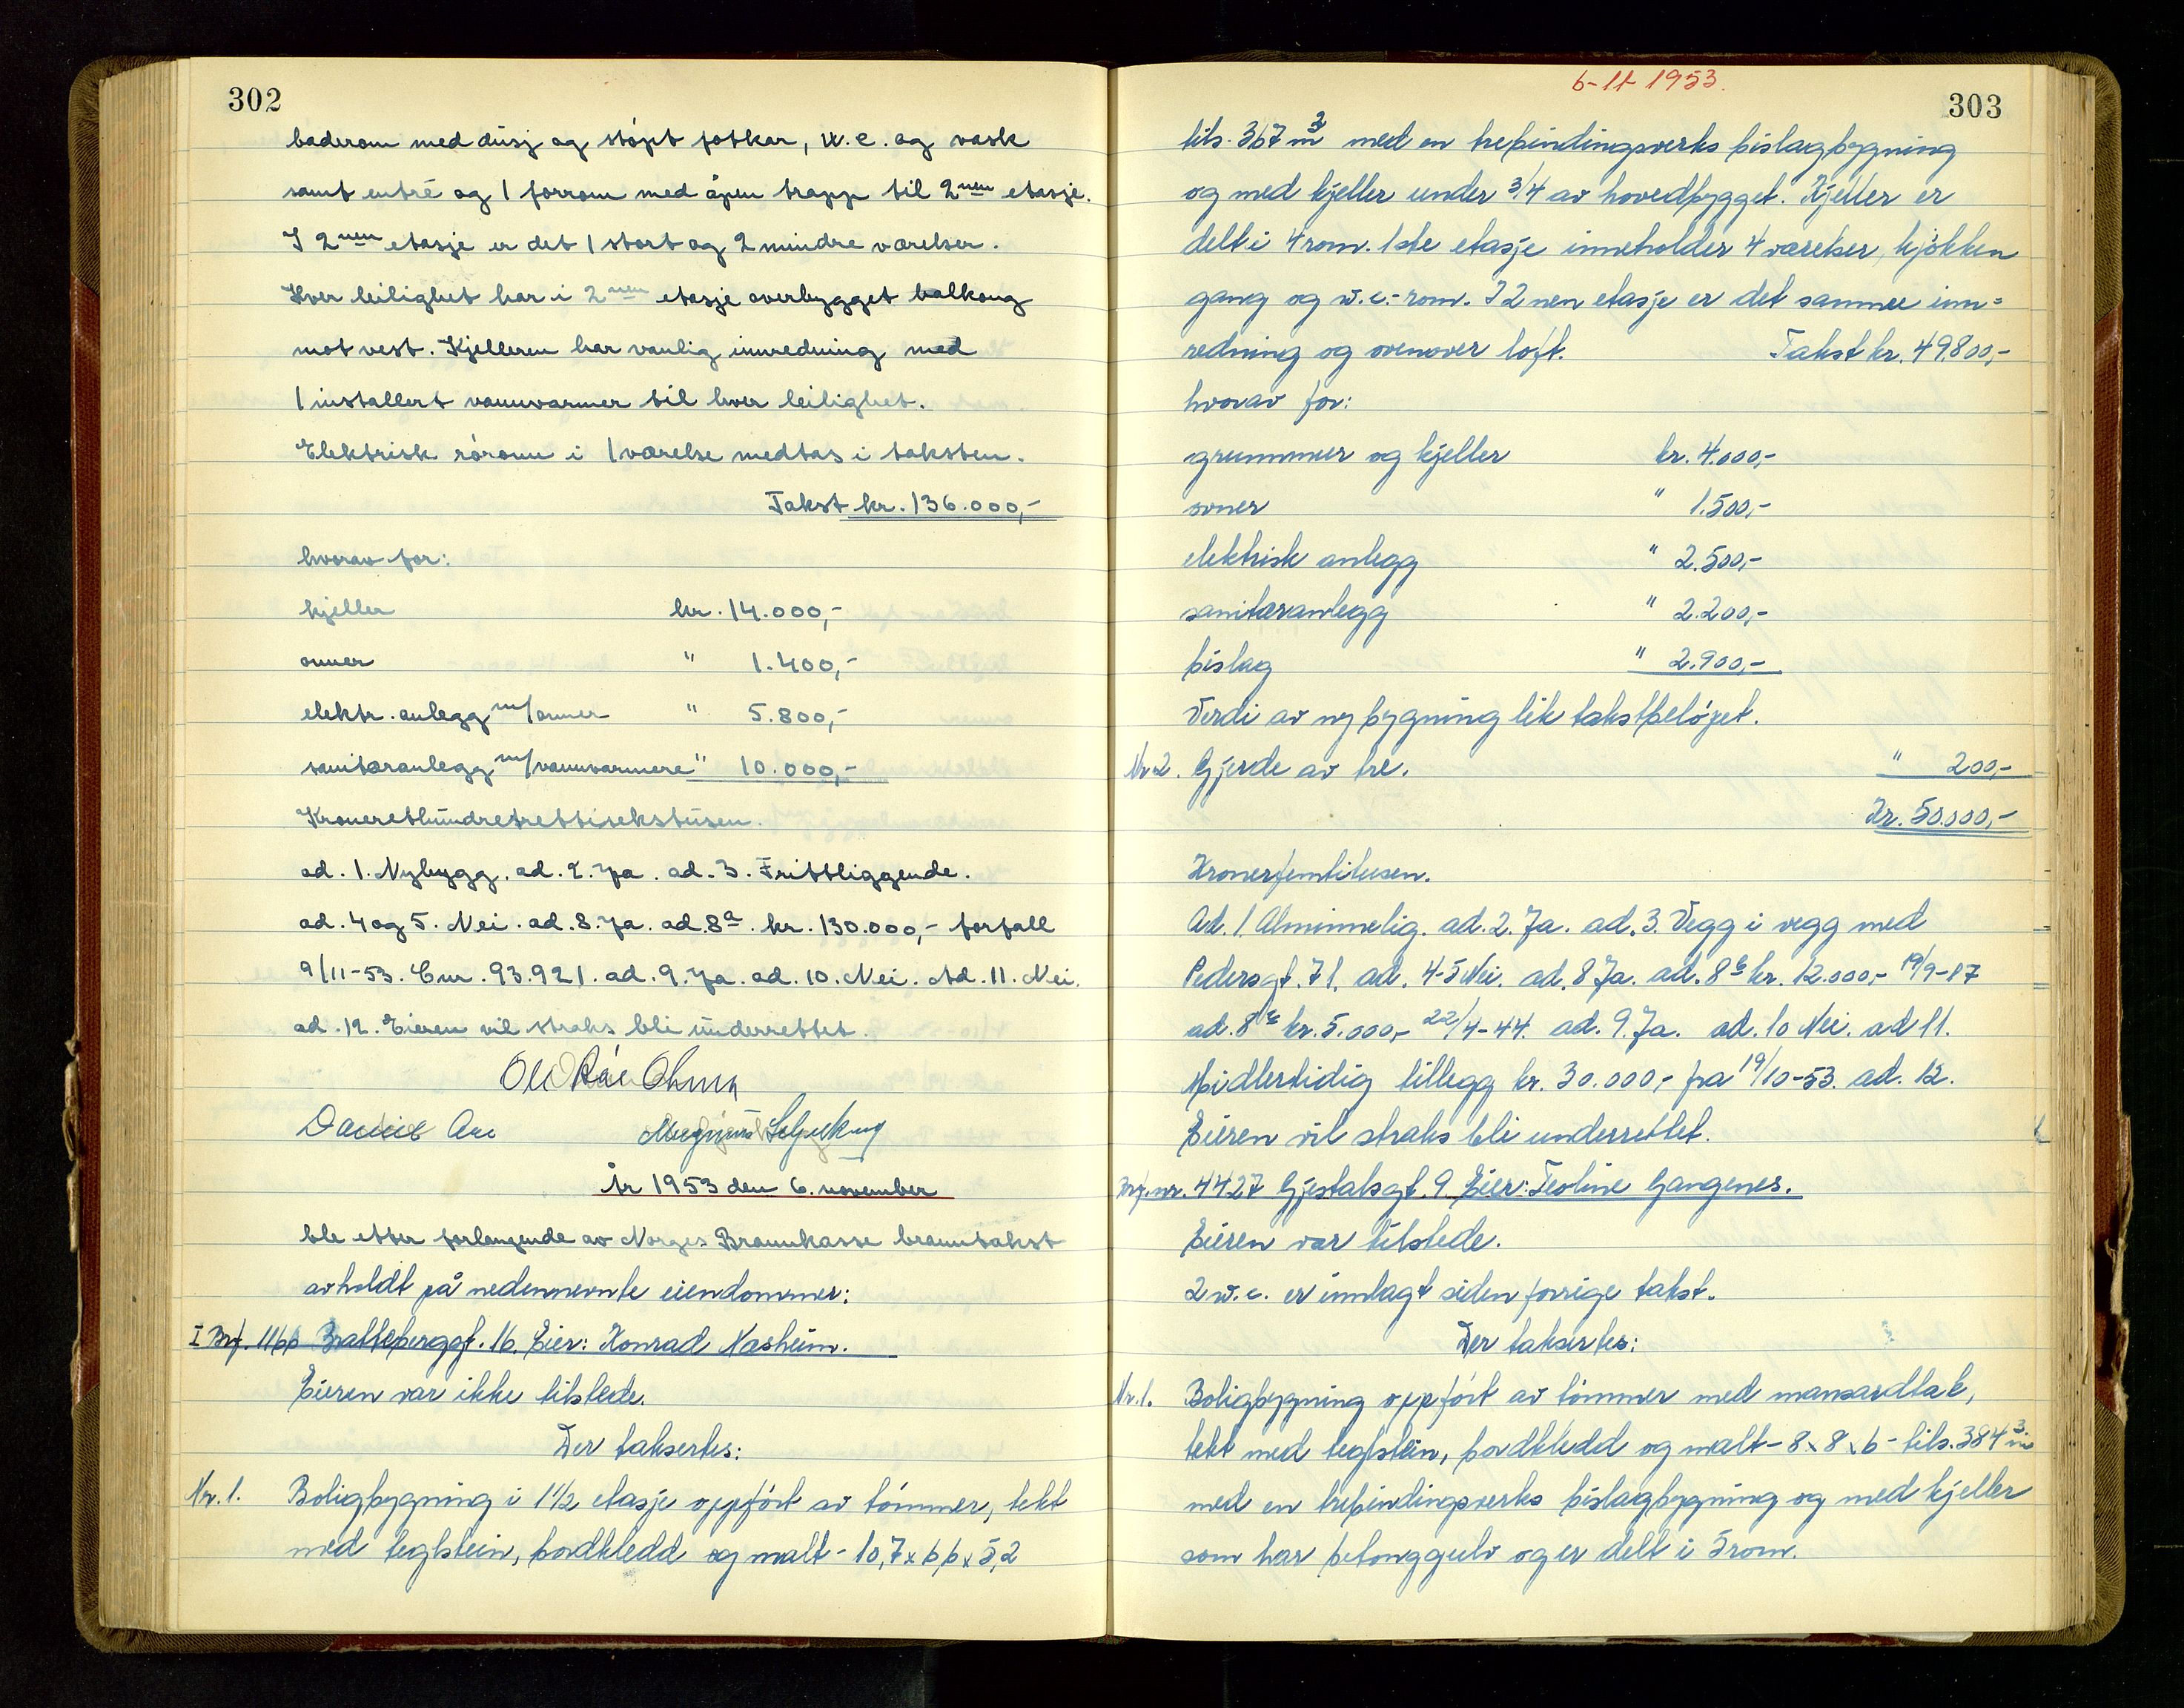 302
baderom med dusj og støpt fotkar, w.c. og vask
samt entré og 1 forrom med åpen trapp til 2nen etasje.
I 2nen etasje er det 1 stort og 2 mindre værelser.
Hver leilighet har i 2nen etasje overbygget balkong
mot vest. Kjelleren har vanlig innredning med
1 installert vannvarmer til hver leilighet.
Elektrisk rørovn i 1 værelse medtas i taksten.
Takst kr. 136.000,-
hvorav for:
kjeller kr. 14.000,-
ovner " 1.400,-
elektr. anlegg m/ovner " 5.800,-
sanitæranlegg m/vannvarmere " 10.000,-
Kroneretthundretrettisekstusen.
ad. 1. Nybygg. ad. 2. Ja. ad. 3. Frittliggende.
ad. 4 og 5. Nei. ad. 8. Ja. ad. 8a. kr. 130.000,- forfall
9/11-53. Cnr. 93.921. ad. 9. Ja. ad. 10. Nei. Ad. 11. Nei.
ad. 12. Eieren vil straks bli underrettet.
År 1953 den 6. november
ble etter forlangende av Norges Brannkasse branntakst
avholdt på nedennevnte eiendommer:
I Brf. 1166 Brattebergsgt. 16. Eier: Konrad Næsheim.
Eieren var ikke tilstede.
Der taksertes:
Nr. 1. Boligbygning i 1 1/2 etasje oppført av tømmer, tekt
med teglstein, bordkledd og malt - 10,7 x 6,6 x 5,2
6-11 1953.
303
tils. 367 m3 med en trebindingsverks bislagbygning
og med kjeller under 3/4 av hovedbygget. Kjeller er
delt i 4 rom. 1ste etasje inneholder 4 værelser, kjøkken
gang og w.c.-rom. I 2nen etasje er det samme inn=
redning og ovenover loft. Takst kr. 49.800,-
hvorav for:
grunnmur og kjeller kr. 4.000,-
ovner " 1.500,-
elektrisk anlegg " 2.500,-
sanitæranlegg " 2.200,-
bislag " 2.900,-
Verdi av ny bygning lik takstbeløpet.
Nr 2. Gjerde av tre. " 200,-
Kr. 50.000,-
Kronerfemtitusen.
Ad. 1. Alminnelig. ad. 2. Ja. ad. 3. Vegg i vegg med
Pedersgt. 71. ad. 4-5 Nei. ad. 8 Ja. ad. 8b kr. 12.000,- 19/9-17
ad. 8 kr. 5.000,- 22/4-44. ad. 9. Ja. ad. 10 Nei. ad 11.
Midlertidig tillegg kr. 30.000,- fra 19/10-53. ad. 12.
Eieren vil straks bli underrettet.
Brf.nr. 4427 Gjestalsgt. 9. Eier: Teoline Gangenes.
Eieren var tilstede.
2 w.c. er innlagt siden forrige takst.
Der taksertes:
Nr. 1. Boligbygning oppført av tømmer med mansardtak,
tekt med teglstein, bordkledd og malt - 8 x 8 x 6 - tils. 384 m3
med en trebindingsverks bislagbygning og med kjeller
som har betonggulv og er delt i 5 rom.